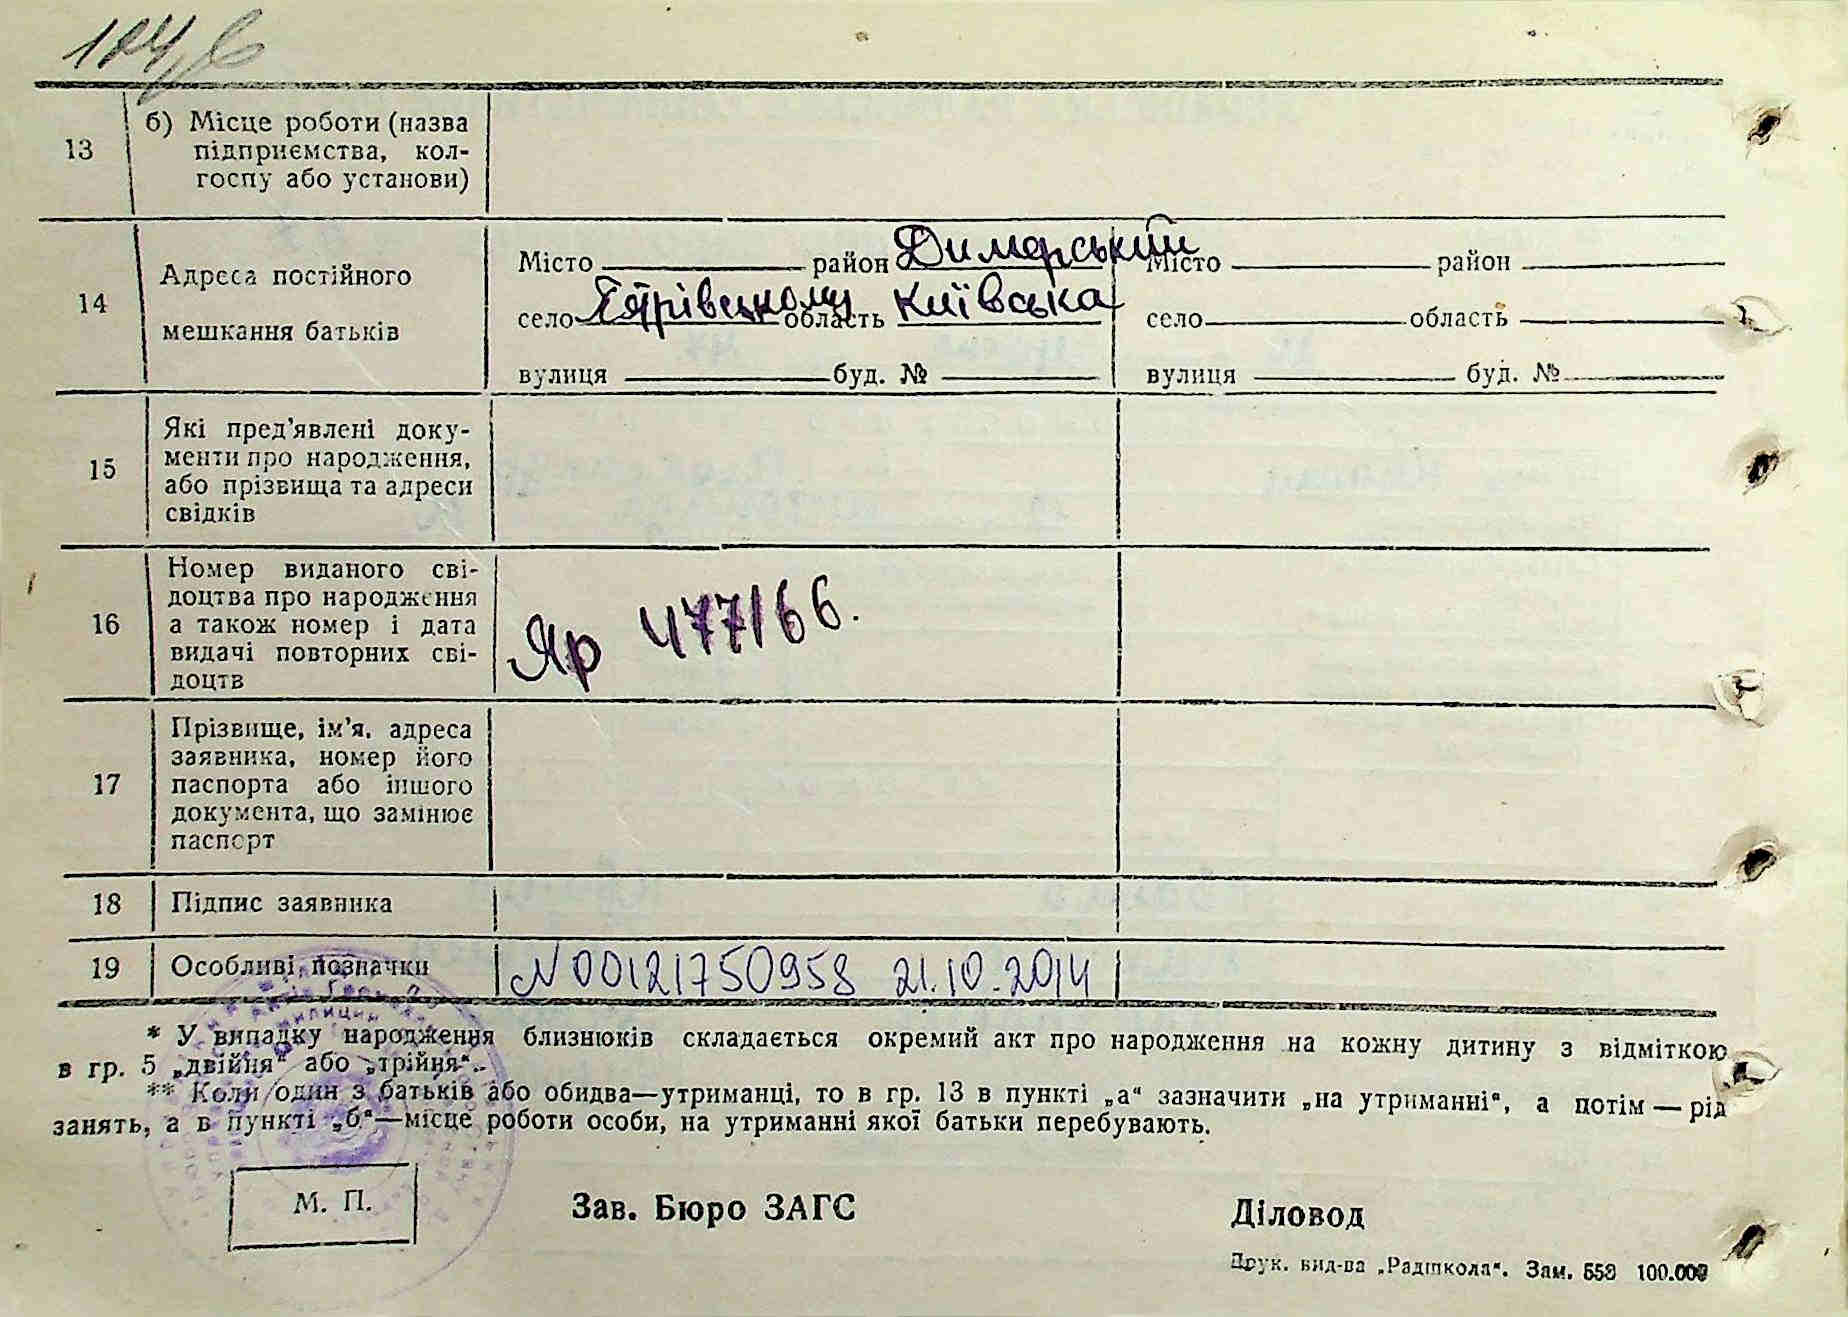 13
б) Місце роботи (назва
підприємства, кол-
госпу або установи)
14
Адреса постійного
мешкання батьків
Місто район Димерський
село область Київська
вулиця буд. №
Місто район
село область
вулиця буд. №
15
Які пред'явлені доку-
менти про народження,
або прізвища та адреси
свідків
16
Номер виданого сві-
доцтва про народження
а також номер і дата
видачі повторних сві-
доцтв
Яр 477166.
17
Прізвище, ім'я, адреса
заявника, номер його
паспорта або іншого
документа, що замінює
паспорт
18
Підпис заявника
19
Особливі позначки
N 00121750958 21.10.2014
* У випадку народження близнюків складається окремий акт про народження на кожну дитину з відміткою
в гр. 5 „двійня“ або „трійня“.
** Коли один з батьків або обидва—утриманці, то в гр. 13 в пункті „а“ зазначити „на утриманні“, а потім — рід
занять, а в пункті „б“—місце роботи особи, на утриманні якої батьки перебувають.
М. П.
Зав. Бюро ЗАГС
Діловод
Друк. вид-ва „Радшкола“. Зам. 558 100.000